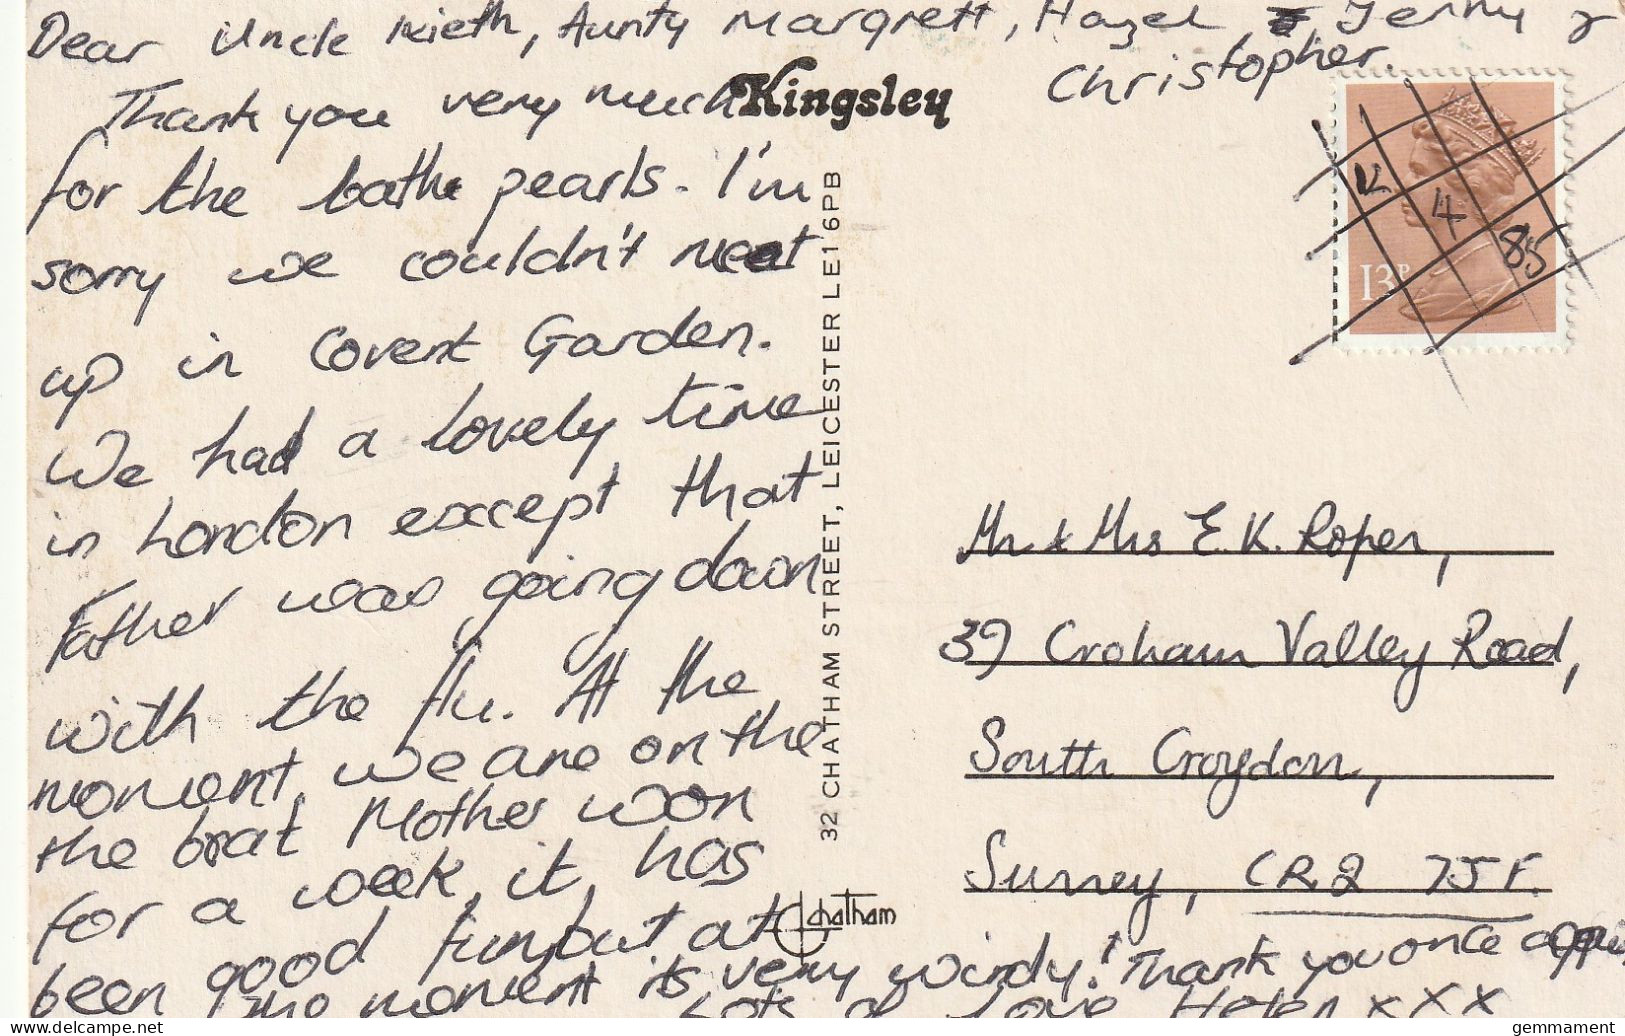 Dear Uncle Kieth, Aunty Margrett, Hazel, Jenny &
Christopher.
Thank you very much
for the bathe pearls. I'm
sorry we couldn't meet
up in Covent Garden.
We had a lovely time
in London except that
Father was going down
with the flu. At the
moment, we are on the
the boat Mother won
for a week, it, has
been good fun, but at
the moment its very windy! Thank you once again
Lots of Love Helen xxx
Kingsley
32 CHATHAM STREET, LEICESTER LE1 6PB
chatham
13P
12 4 85
Mr & Mrs E.K. Roper,
39 Croham Valley Road,
South Croydon,
Surrey, CR2 7JF.
gemmament